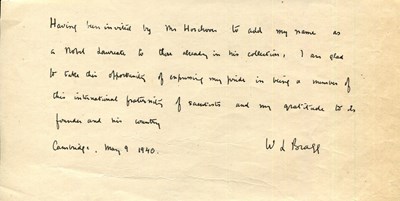 Having been invited by Mr Horchow to add my name as
a Nobel Laureate to those already in his collection, I am glad
to take this opportunity of expressing my pride in being a member of
this international fraternity of scientists and my gratitude to its
founder and his country
Cambridge. May 9 1940. W L Bragg